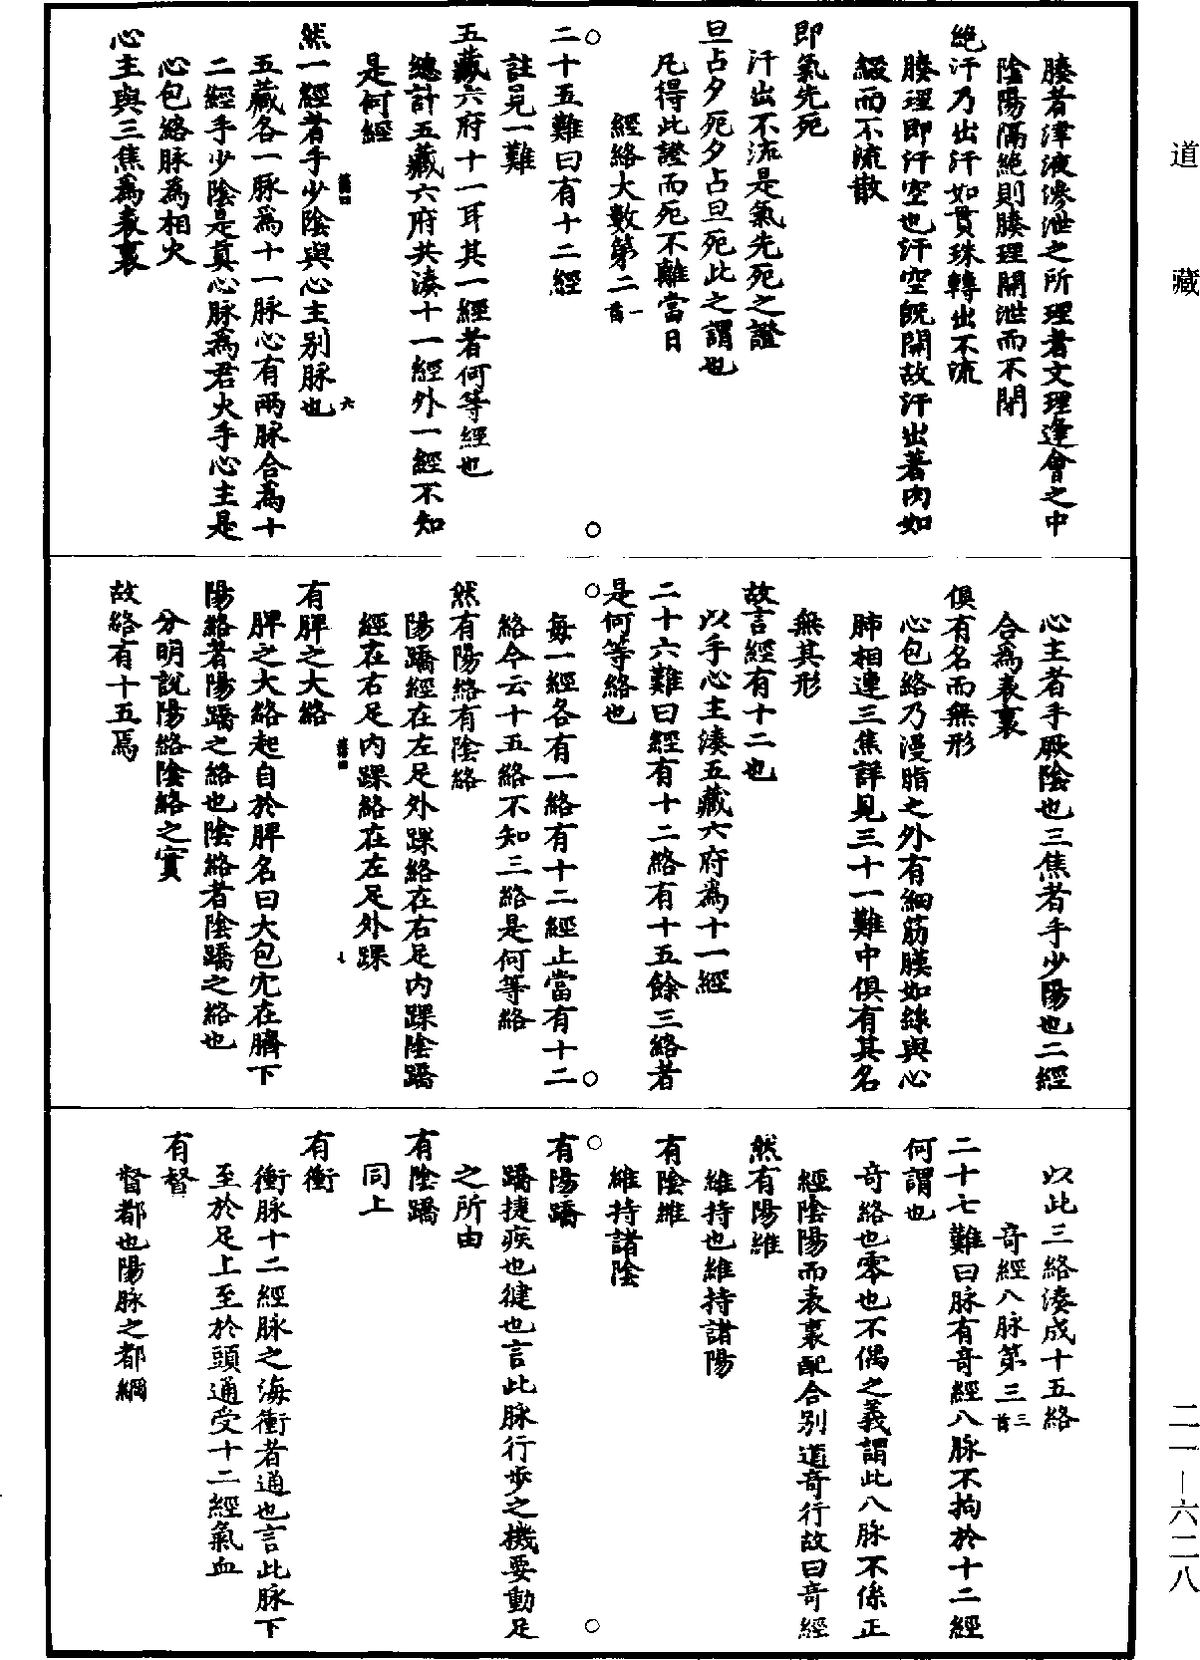 道藏
腠者津液滲泄之所理者文理逢會之中
陰陽隔絶則腠理開泄而不閉
絶汗乃出汗如貫珠轉出不流
腠理即汗空也汗空旣開故汗出著肉如
綴而不流散
即氣先死
汗出不流是氣先死之證
旦占夕死夕占旦死此之謂也
凡得此證而死不離當日
經絡大數第二一首
二十五難曰有十二經
註見一難
五藏六府十一耳其一經者何等經也
總計五藏六府共湊十一經外一經不知
是何經
六
然一經者手少陰與心主别脉也
五藏各一脉爲十一脉心有兩脉合爲十
二經手少陰是眞心脉爲君火手心主是
心包絡脉爲相火
心主與三焦爲表裏
心主者手厥陰也三焦者手少陽也二經
合爲表裏
俱有名而無形
心包絡乃漫脂之外有細筋膜如絲與心
肺相連三焦詳見三十一難中俱有其名
無其形
故言經有十二也
以手心主湊五藏六府爲十一經
二十六難曰經有十二絡有十五餘三絡者
是何等絡也
每一經各有一絡有十二經止當有十二
絡今云十五絡不知三絡是何等絡
然有陽絡有陰絡
陽蹻經在左足外踝絡在右足内踝陰蹻
經在右足内踝絡在左足外踝
有脾之大絡
脾之大絡起自於脾名曰大包穴在臍下
陽絡者陽蹻之絡也陰絡者陰蹻之絡也
分明説陽絡陰絡之實
故絡有十五焉
以此三絡湊成十五絡
奇經八脉第三三首
二十七難曰脉有奇經八脉不拘於十二經
何謂也
奇絡也零也不偶之義謂此八脉不係正
經陰陽而表裏配合别道奇行故曰奇經
然有陽維
維持也維持諸陽
有陰維
維持諸陰
有陽蹻
蹻捷疾也健也言此脉行步之機要動足
之所由
有陰蹻
同上
有衝
衝脉十二經脉之海衝者通也言此脉下
至於足上至於頭通受十二經氣血
有督
督都也陽脉之都綱
二一—六二八